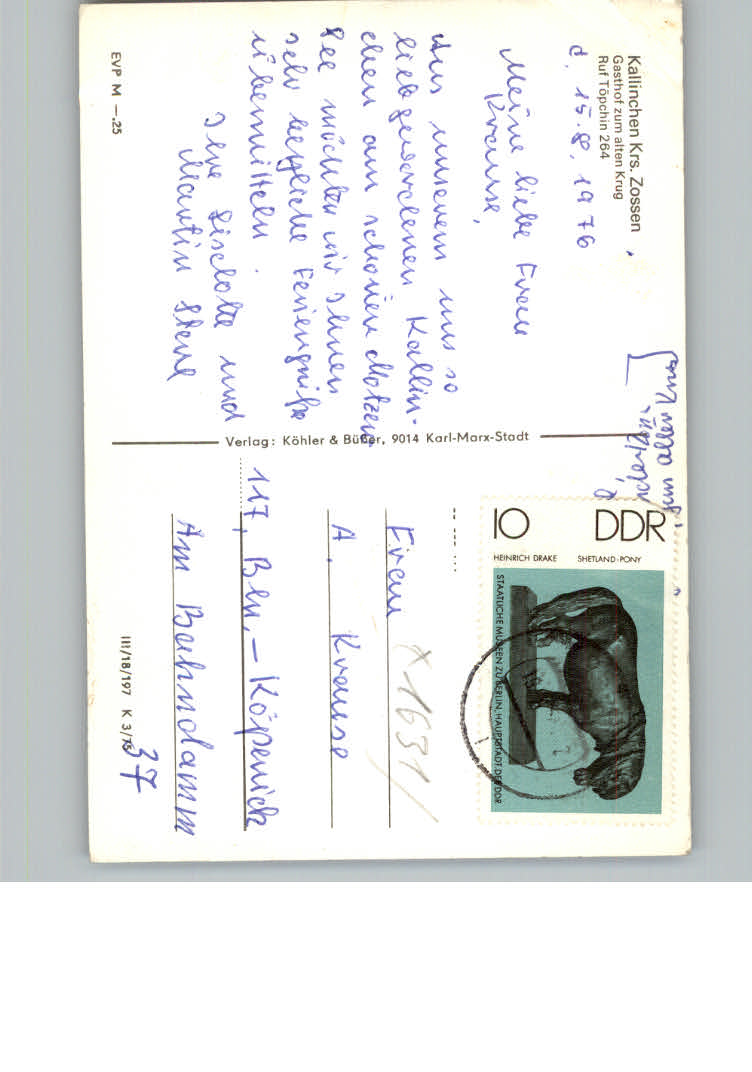 Kallinchen Krs. Zossen
Gasthof zum alten Krug
Ruf Töpchin 264
d. 15.8.1976
Meine liebe Frau
Krause,
Aus unserem uns so
liebgewordenen Kallin-
chen am schönen Motzen
See möchten wir Ihnen
sehr herzliche Feriengrüße
übermitteln.
Ihre Liselotte und
Martin
EVP M —.25
Verlag: Köhler & Büßer, 9014 Karl-Marx-Stadt
10 DDR
HEINRICH DRAKE SHETLAND-PONY
STAATLICHE MUSEEN ZU BERLIN, HAUPTSTADT DER DDR
x 1631/
Frau
A. Krause
117, Bln.-Köpenick
Am Bahndamm
37
III/18/197 K 3/75